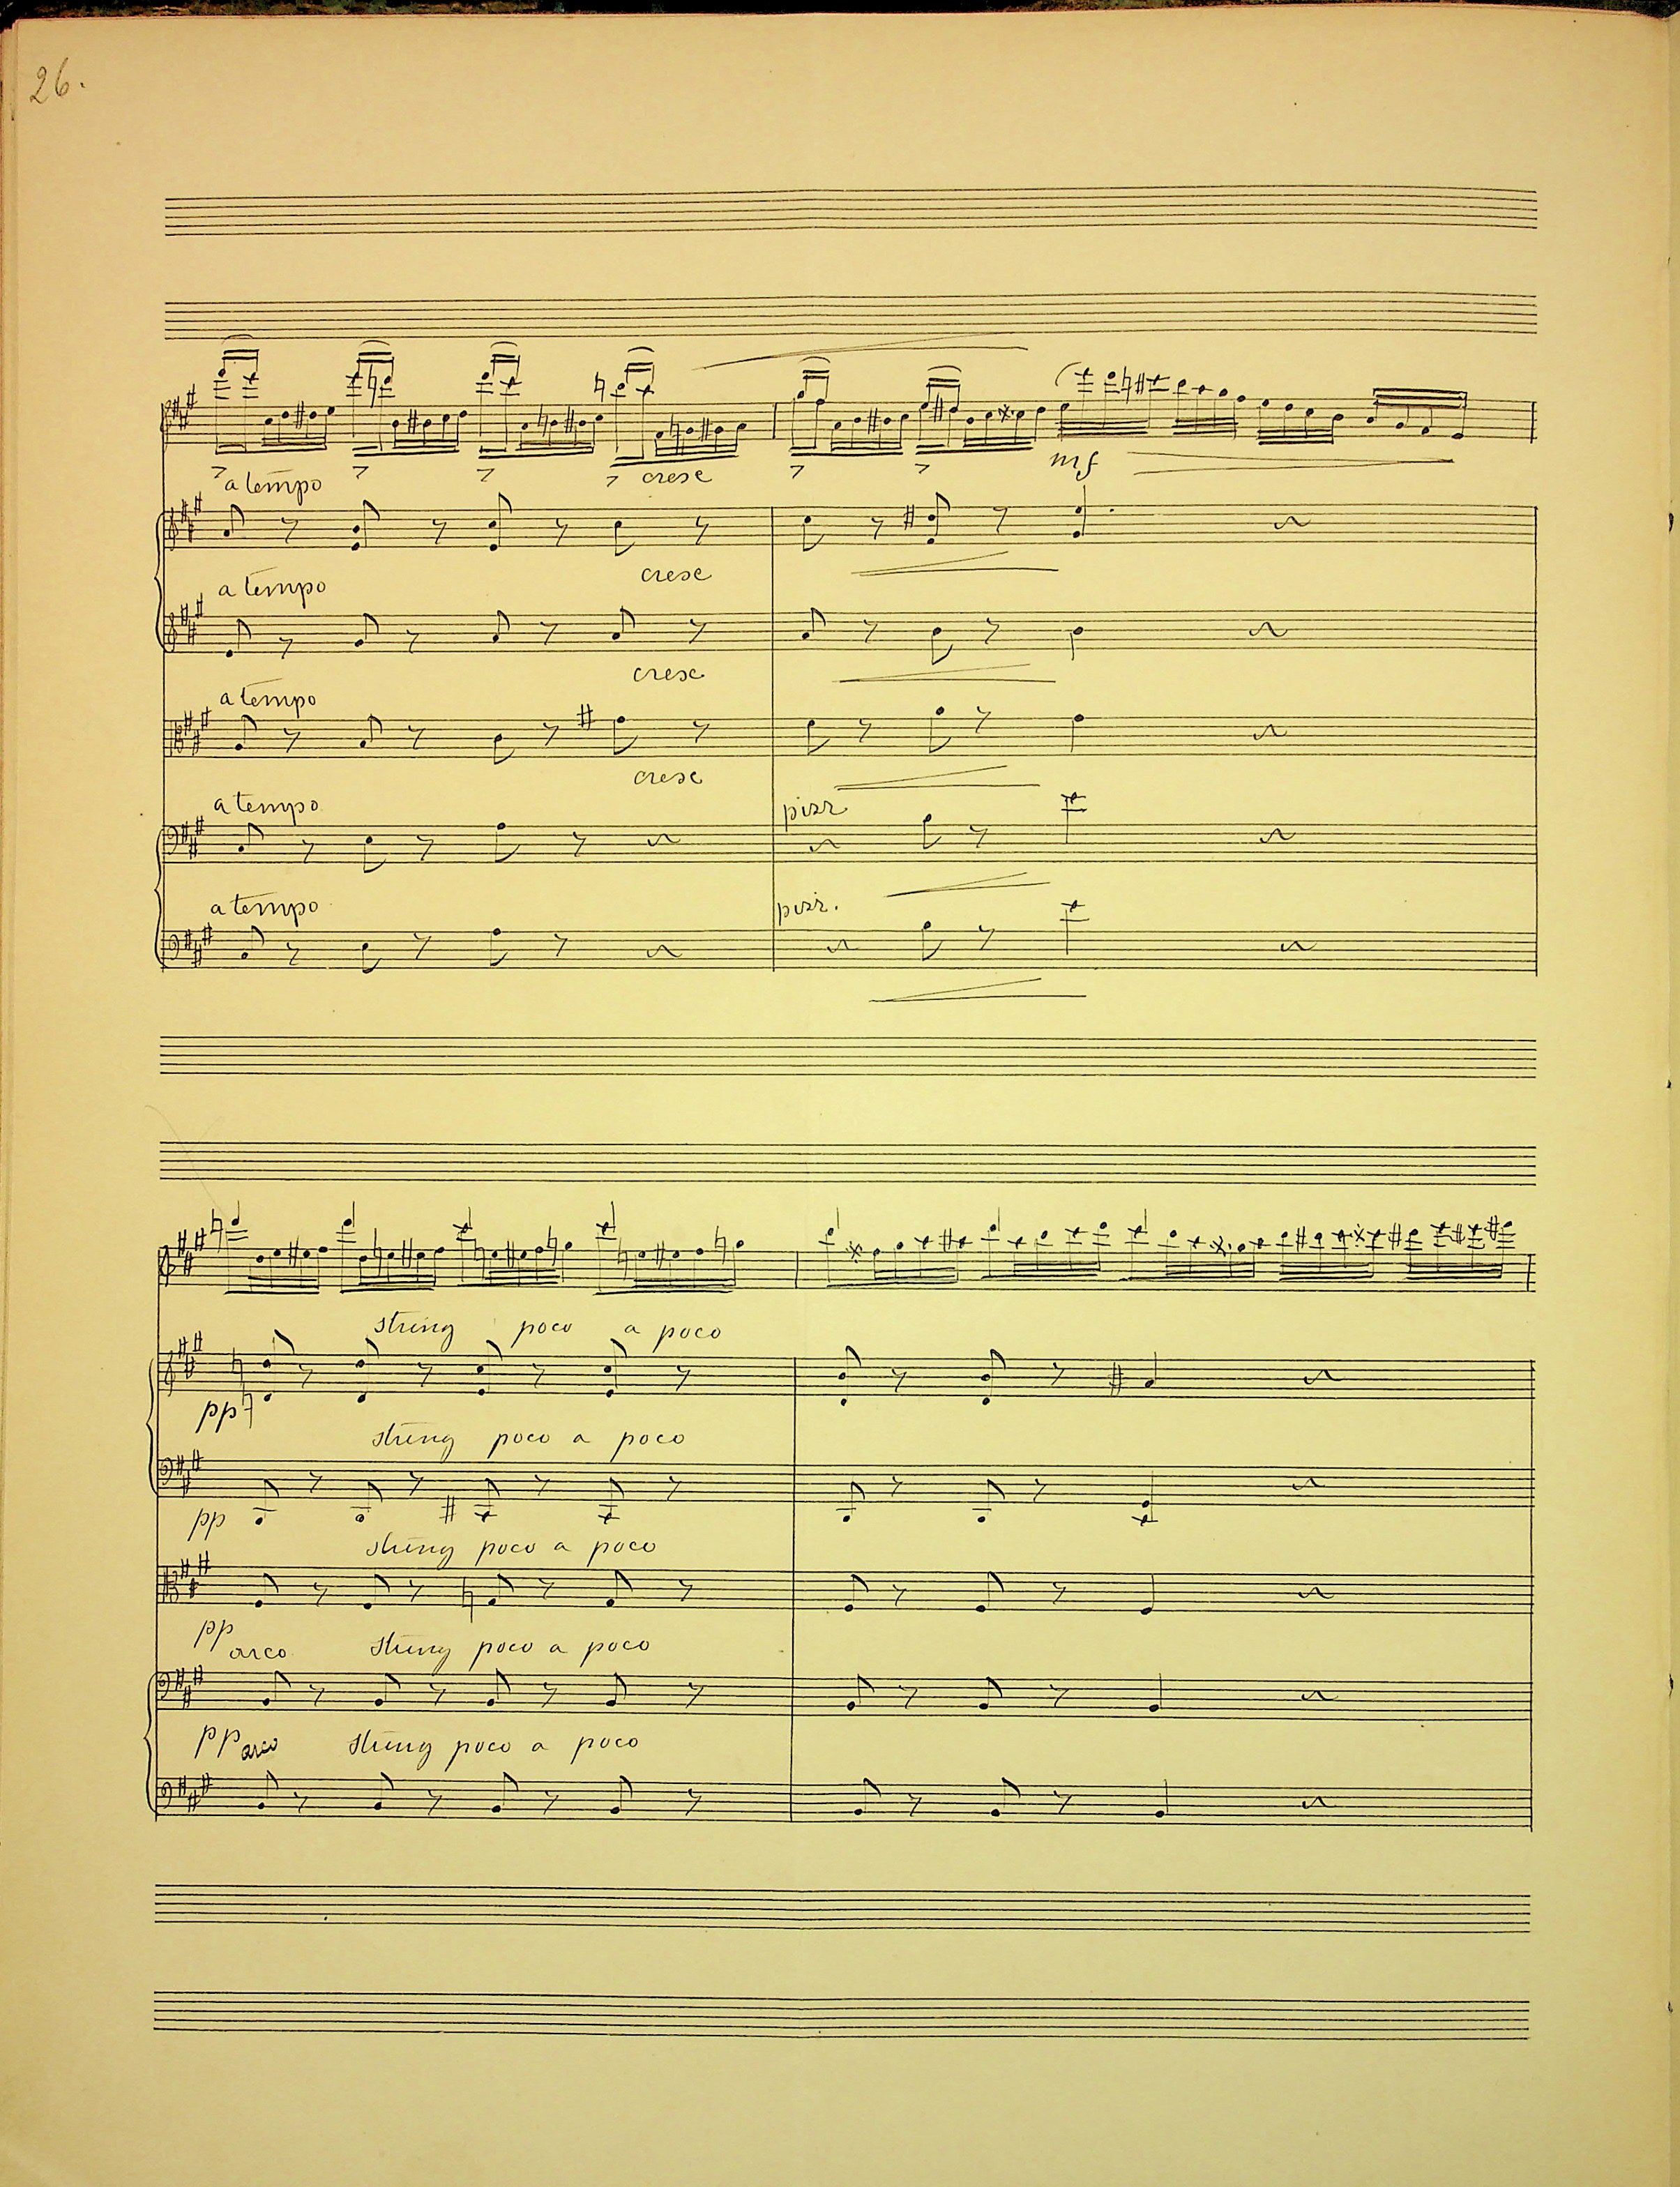 26.
mf
a tempo cresc
a tempo cresc
a tempo cresc
a tempo cresc
a tempo pizz
a tempo pizz.
string poco a poco
pp
string poco a poco
pp
string poco a poco
pp
arco string poco a poco
pp arco string poco a poco